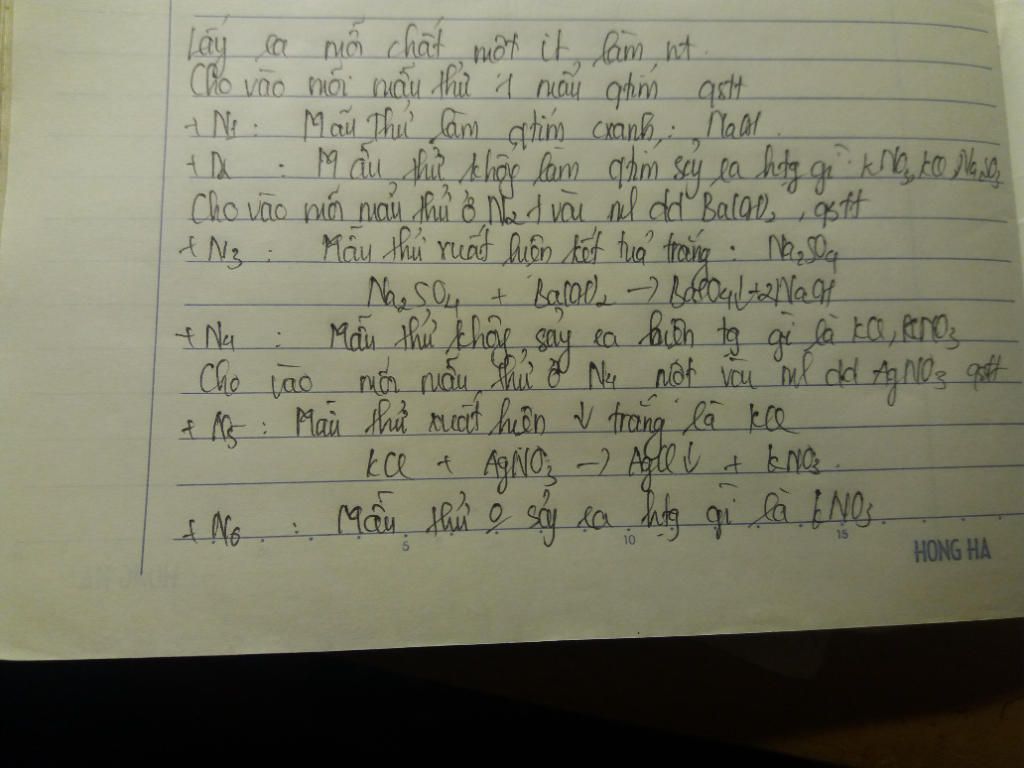 Lấy ra mỗi chất một ít làm nt.
Cho vào mỗi mẫu thử 1 mẩu qtím qstt
+ N1 : Mẫu Thử làm qtím cxanh : NaOH.
+ N2 : Mẫu thử không làm qtím sảy ra htg gì : KNO3, KCl, Na2SO4
Cho vào mỗi mẫu thử ở N2 1 vài ml dd Ba(OH)2, qstt
+ N3 : Mẫu thử xuất hiện kết tuả trắng : Na2SO4
Na2SO4 + Ba(OH)2 → BaSO4↓ + 2NaOH
+ N4 : Mẫu thử không sảy ra hiện tg gì là KCl, KNO3
Cho vào mỗi mẫu thử ở N4 một vài ml dd AgNO3 qstt
+ N5 : Mẫu thử xuất hiện ↓ trắng là KCl
KCl + AgNO3 → AgCl↓ + KNO3.
+ N6 : Mẫu thử o sảy ra htg gì là KNO3.
5 10 15
HONG HA